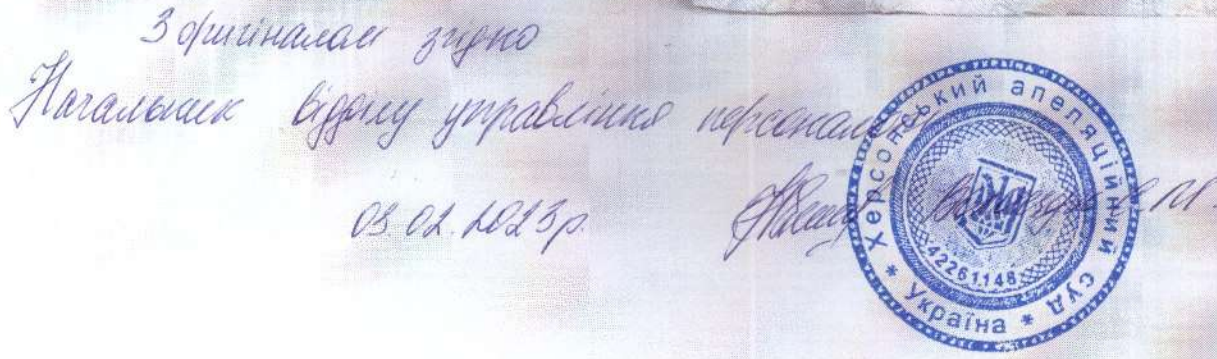 З оригіналом згідно
Начальник відділу управління персоналом
03.02.2023р.
Херсонський апеляційний суд
* Україна *
42261148